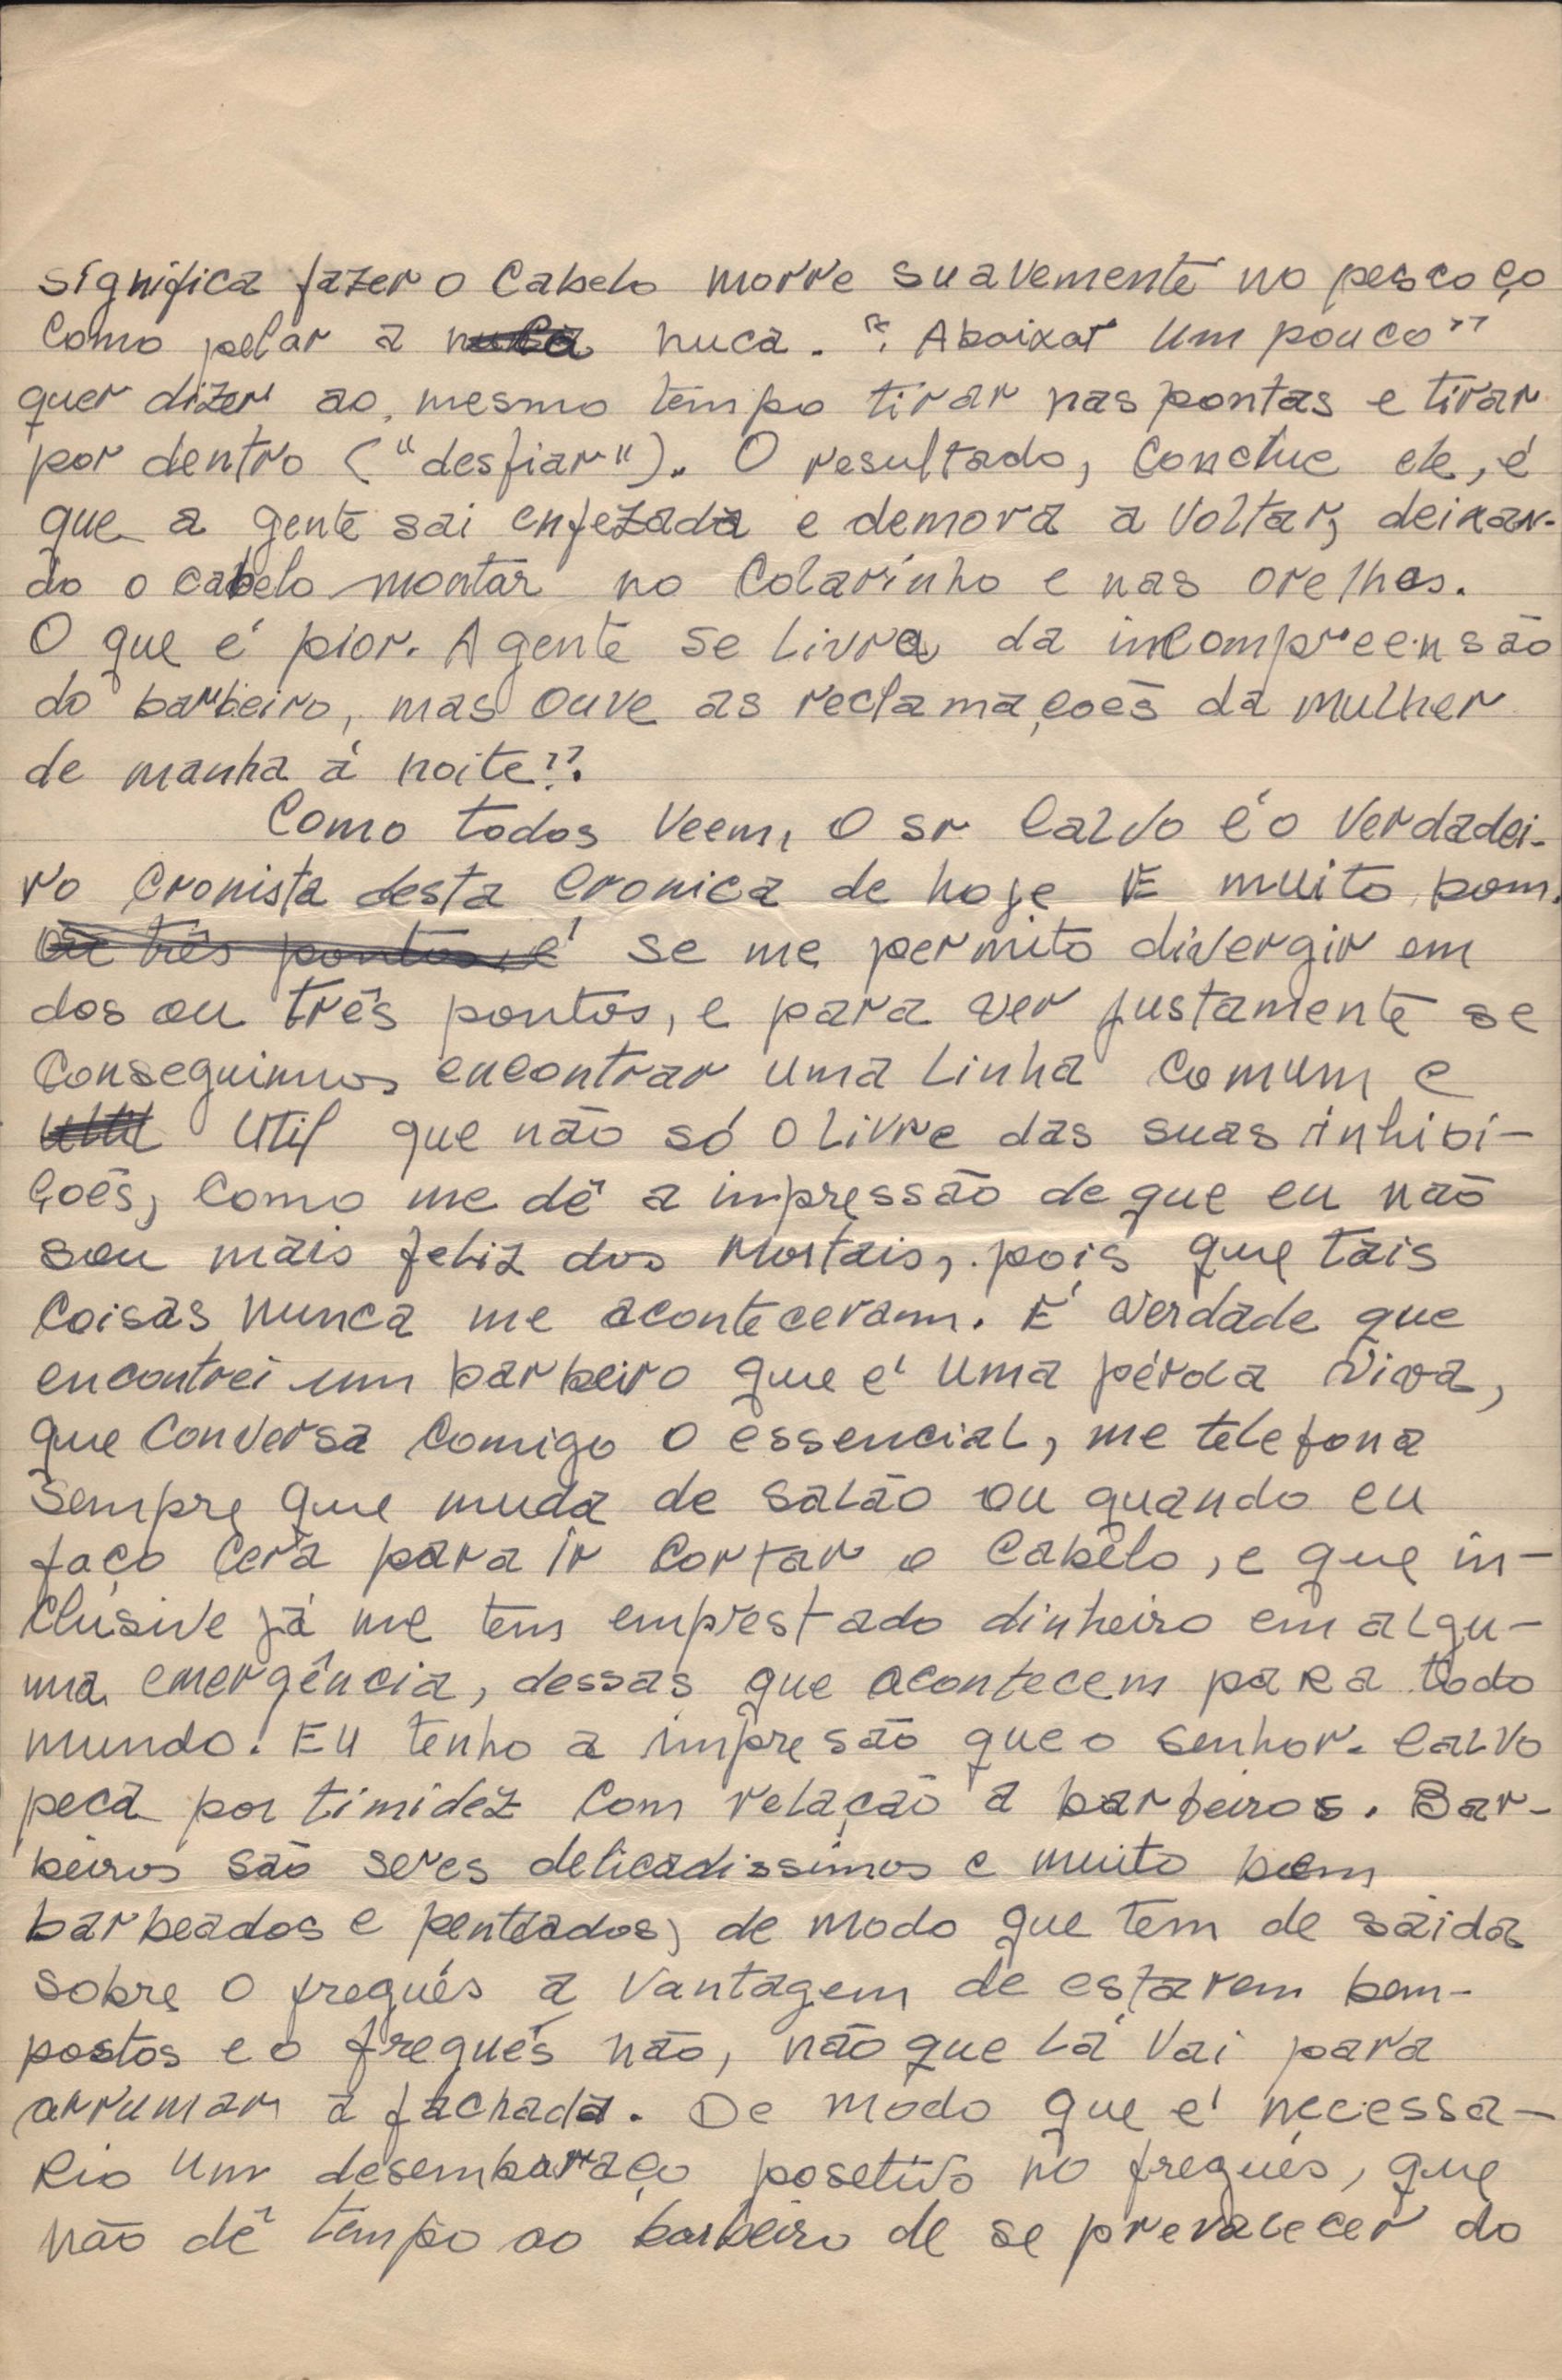 significa fazer o cabelo morre suavemente no pescoço
como pelar a nuca nuca. ". Abaixar um pouco"
quer dizer ao mesmo tempo tirar nas pontas e tirar
por dentro ("desfiar"). O resultado, conclue ele, é
que a gente sai enfezada e demora a voltar, deixan-
do o cabelo montar no colarinho e nas orelhas.
O que é pior. A gente se livra da incompreensão
do barbeiro, mas ouve as reclamaçoēs da mulher
de manha á noite".
Como todos veem, o sr Calvo é o verdadei-
ro cronista desta cronica de hoje E muito bom.
ou três pontos é se me permito divergir em
dos ou três pontos, e para ver justamente se
conseguimos encontrar uma linha comum e
util que não só o livre das suas inhibi-
çoēs, como me dê a impressão de que eu não
sou mais feliz dos mortais, pois que tais
coisas nunca me aconteceram. É verdade que
encontrei um barbeiro que é uma pérola viva,
que conversa comigo o essencial, me telefona
sempre que muda de salão ou quando eu
faço cera para ir cortar o cabêlo, e que in-
clusive já me tem emprestado dinheiro em algu-
ma emergência, dessas que acontecem para todo
mundo. Eu tenho a impresão que o senhor. Calvo
peca por timidez com relação a barbeiros. Bar-
beiros são seres delicadissimos e muito bem
barbeados e penteados, de modo que tem de saida
sobre o freguês a vantagem de estarem bem-
postos e o freguês não, não que lá vai para
arrumar a fachada. De modo que é necessa-
rio um desembaraço posetivo no freguês, que
não dê tempo ao barbeiro de se prevalecer do